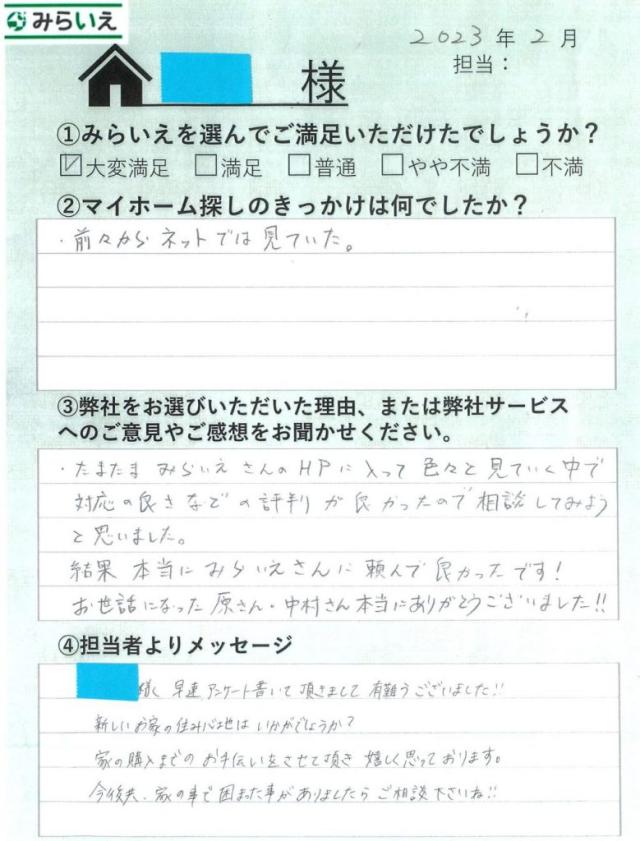 みらいえ
2023年2月
担当：
様
①みらいえを選んでご満足いただけたでしょうか？
☑大変満足 □満足 □普通 □やや不満 □不満
②マイホーム探しのきっかけは何でしたか？
・前々からネットでは見ていた。
③弊社をお選びいただいた理由、または弊社サービス
へのご意見やご感想をお聞かせください。
・たまたま みらいえさんのHPに入って色々と見ていく中で
対応の良さなどの評判が良かったので相談してみよう
と思いました。
結果 本当にみらいえさんに頼んで良かったです！
お世話になった原さん・中村さん本当にありがとうございました!!
④担当者よりメッセージ
様 早速アンケート書いて頂きまして有難うございました!!
新しいお家の住み心地はいかがでしょうか？
家の購入までのお手伝いをさせて頂き嬉しく思っております。
今後共、家の事で困まった事がありましたらご相談下さいね!!